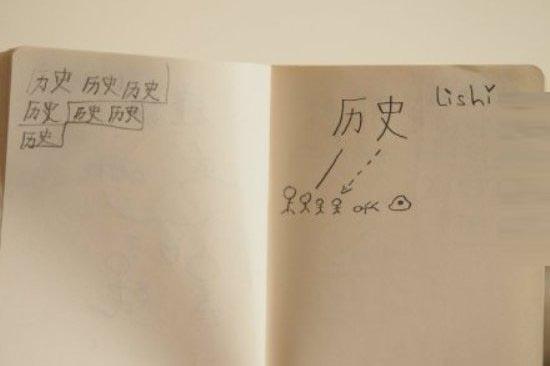 历史 历史 历史
历史 历史 历史
历史
历史
Lishi